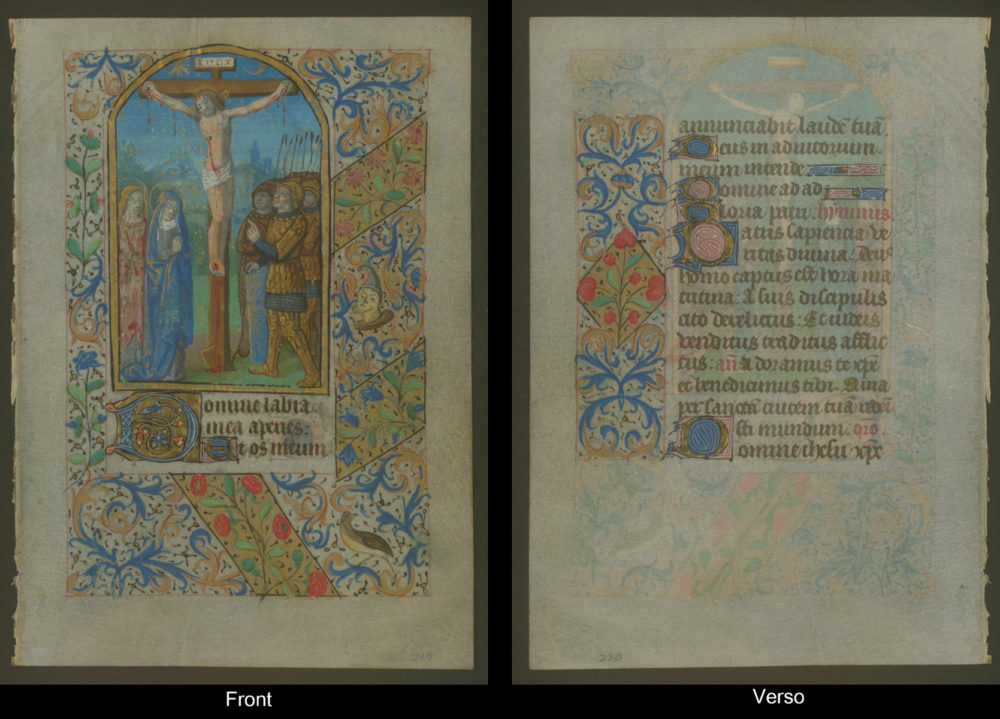 INRI
Domine labia
mea aperies:
Et os meum
219
Front
annunciabit laudē tuā
Deus in adiutorium
meum intende
Domine ad ad
Gloria patri hymnus
Patris sapiencia ve
ritas divina: deus
homo captus est hora ma
tutina: A suis discipulis
cito derelictus: Et iudeis
venditus traditus afflic
tus: añ Adoramus te xp̄e
et benedicimus tibi. Quia
per sanctā crucem tuā redem
isti mundum. oro.
Domine ihesu xp̄e
220
Verso